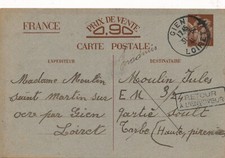 FRANCE
PRIX DE VENTE
0,90
CARTE POSTALE
GIEN
LOIRET
EXPÉDITEUR
DESTINATAIRE
Madame Moulin
Saint Martin sur
ocre par Gien
Loiret
Moulin Jules
E N
Soult
Tarbe (Haute
RETOUR